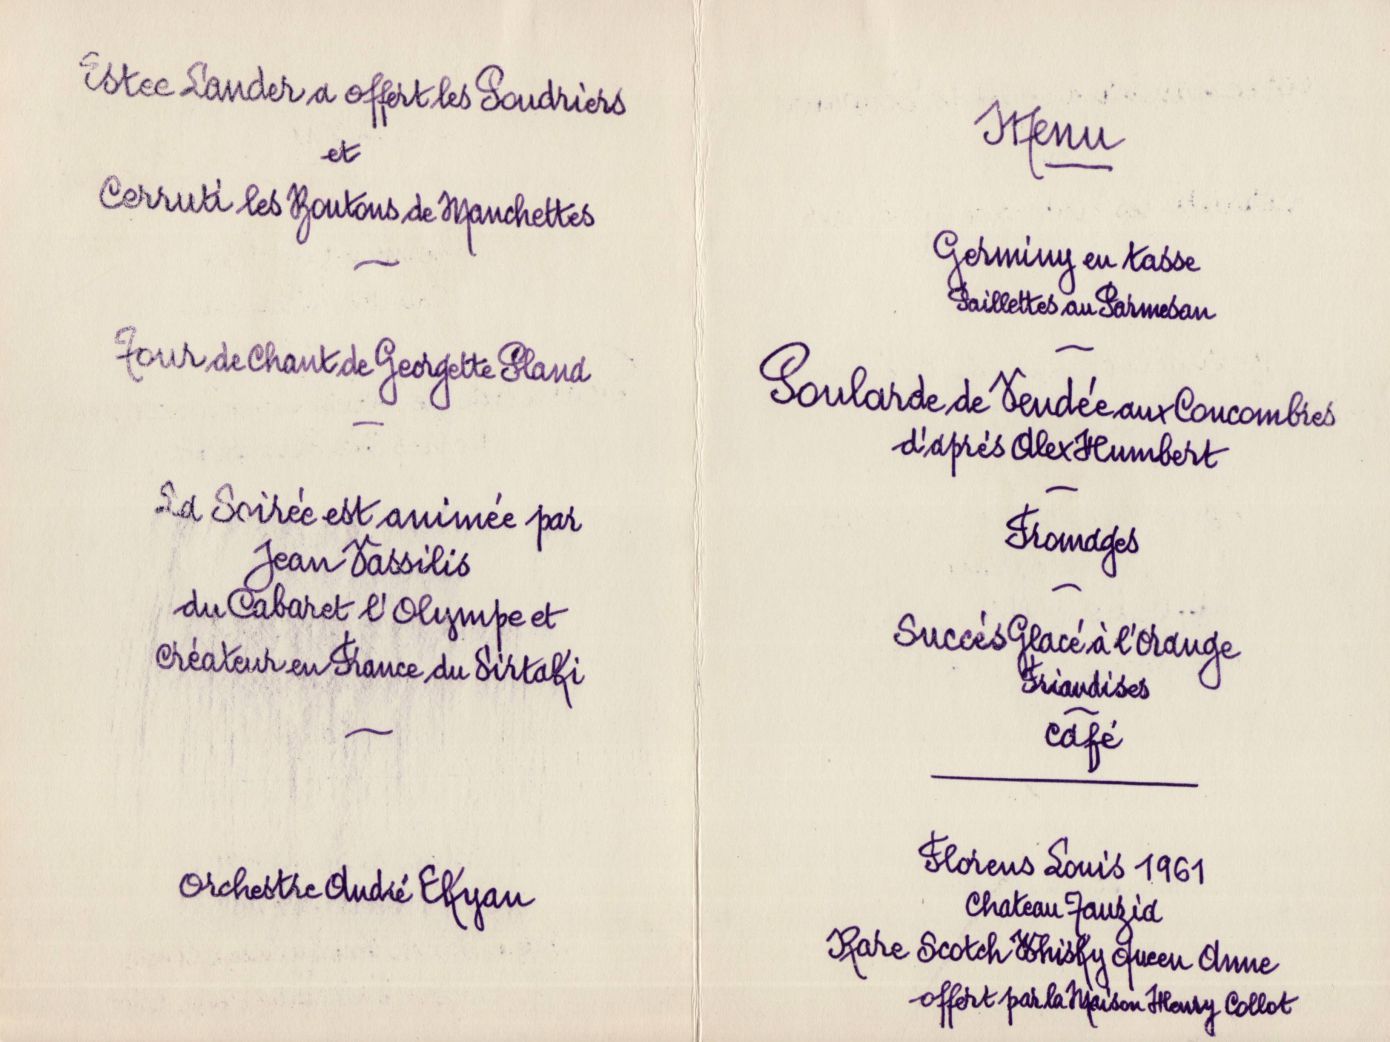 Estee Lauder a offert les Poudriers
et
Cerruti les Boutons de Manchettes
Tour de Chant de Georgette Plana
La Soirée est animée par
Jean Vassilis
du Cabaret l'Olympe et
Créateur en France du Sirtaki
Orchestre André Ekyan
Menu
Germiny en tasse
Paillettes au Parmesan
Poularde de Vendée aux Concombres
d'aprés Alex Humbert
Fromages
Succés Glacé à l'Orange
Friandises
Café
Florens Louis 1961
Chateau Tauzia
Rare Scotch Whisky Queen Anne
offert par la Maison Henry Collot